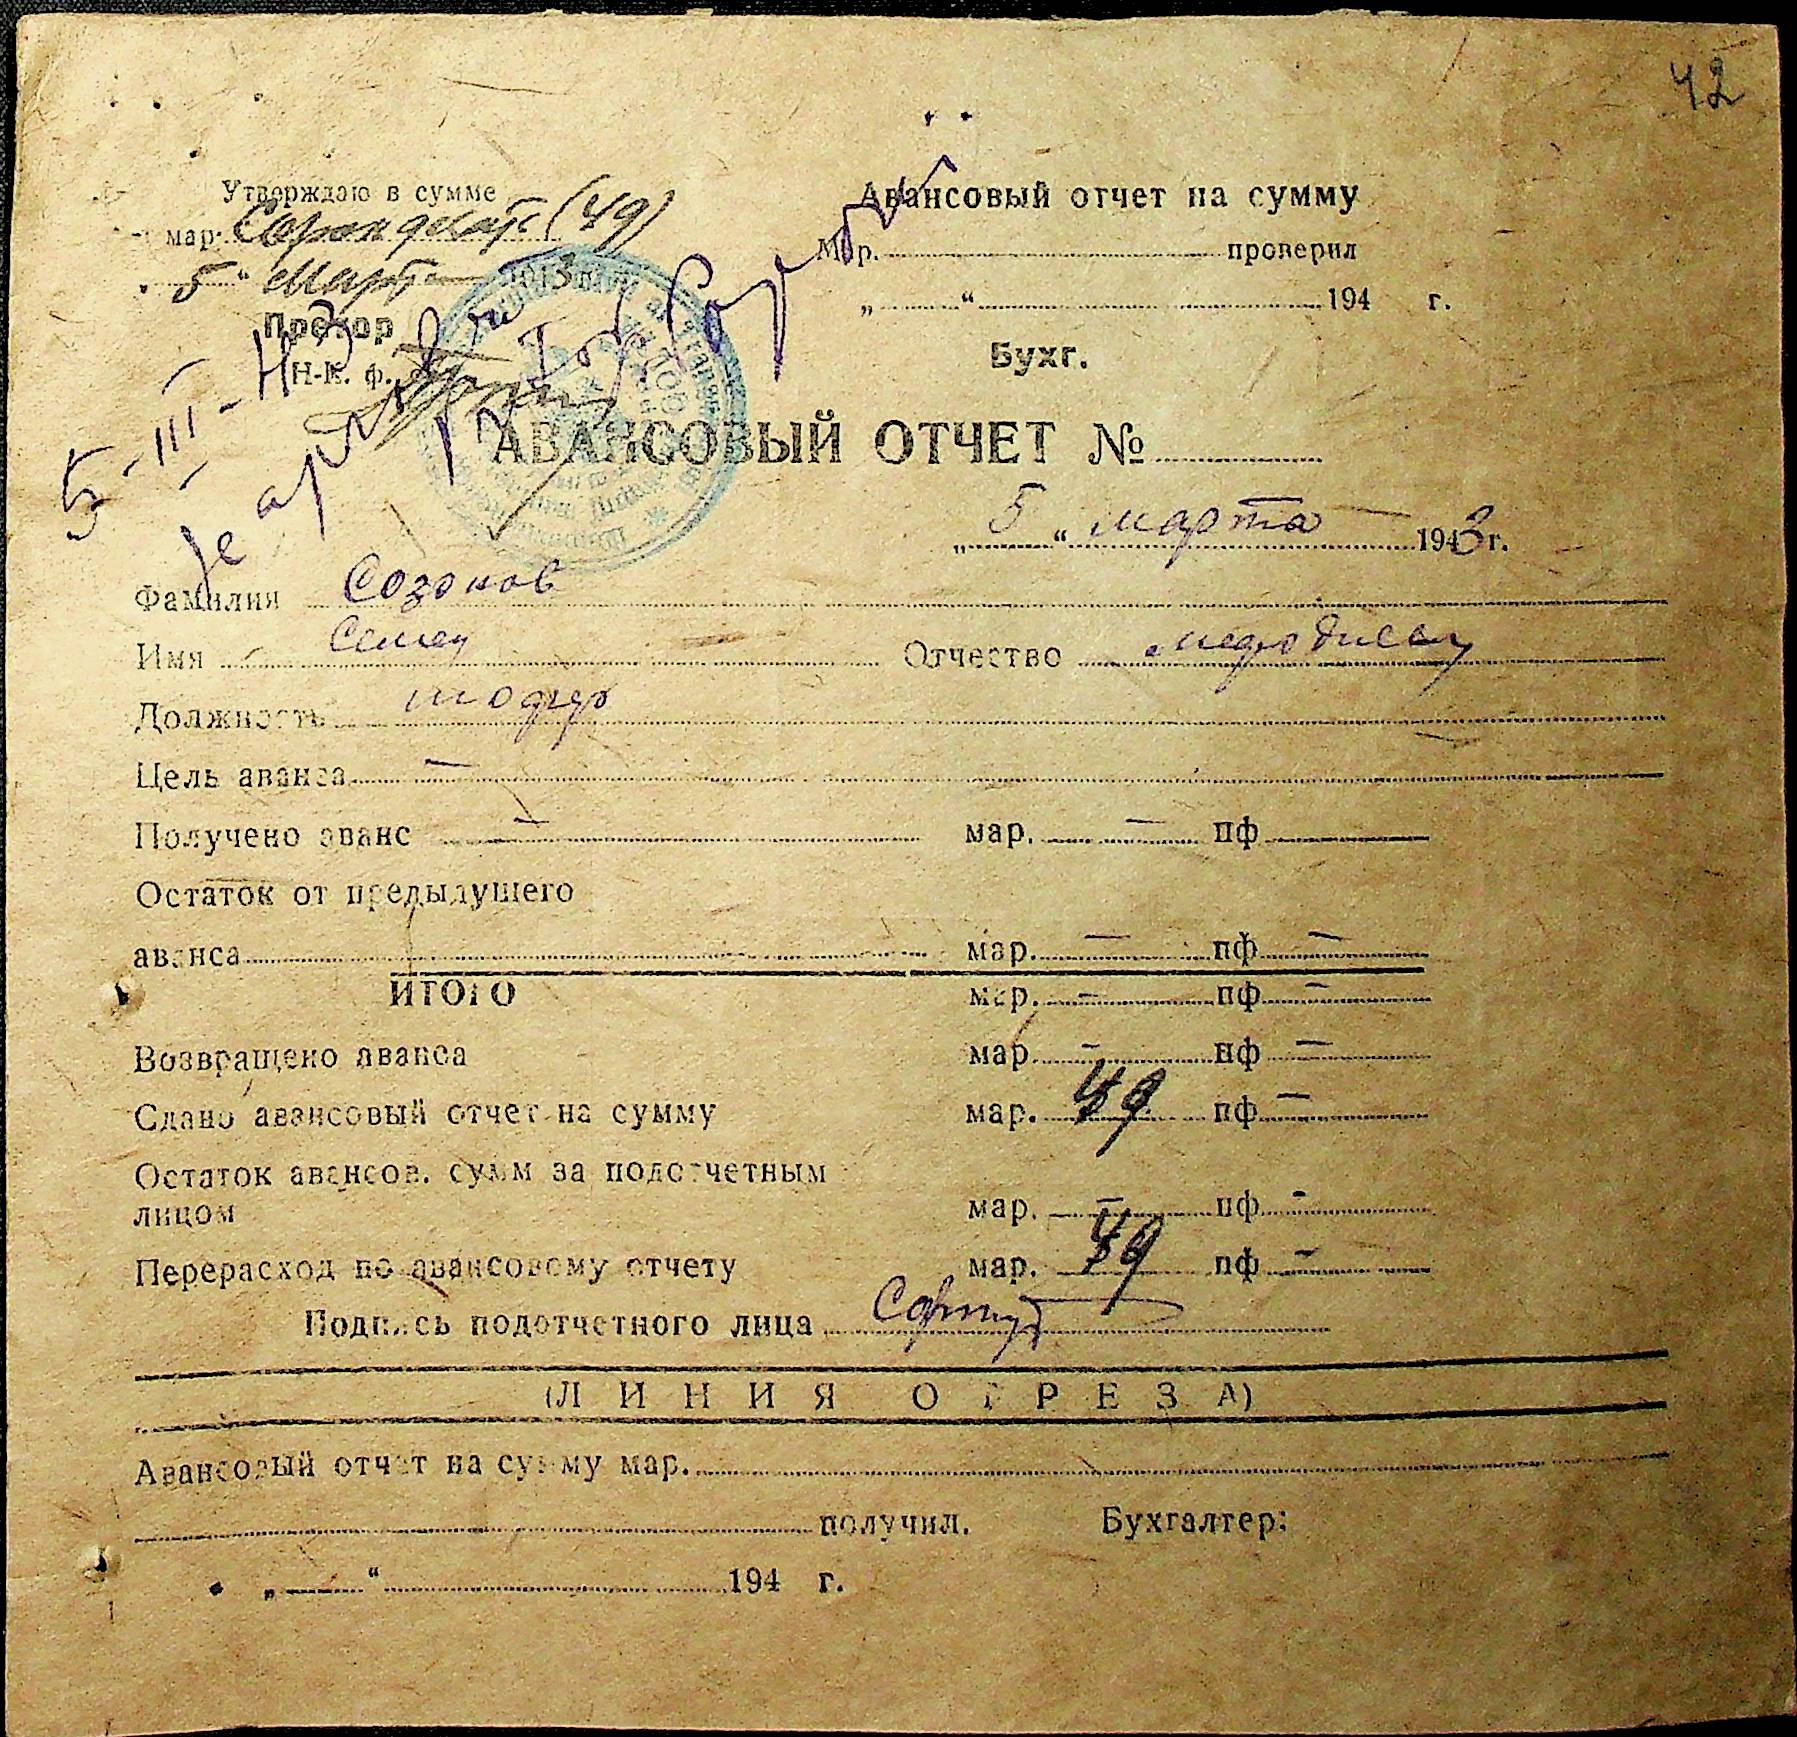 42
Утверждаю в сумме
мар. Сорок девять (49)
5 " Марта 1943 г.
Претор
Н-к. ф. о.
Авансовый отчет на сумму
Мар. проверил
„ “ 194 г.
Бухг.
5-III-43
АВАНСОВЫЙ ОТЧЕТ №
„ 5 “ марта 1943 г.
Фамилия Созонов
Имя Семен Отчество
Должность шофер
Цель аванса —
Получено аванс — мар. — пф
Остаток от предыдущего
аванса мар. — пф —
ИТОГО мар. — пф —
Возвращено аванса мар. — пф —
Сдано авансовый отчет на сумму мар. 49 пф —
Остаток авансов. сумм за подотчетным
лицом мар. — пф -
Перерасход по авансовому отчету мар. 49 пф —
Подпись подотчетного лица
(ЛИНИЯ ОТРЕЗА)
Авансовый отчет на сумму мар.
получил. Бухгалтер:
„ “ 194 г.